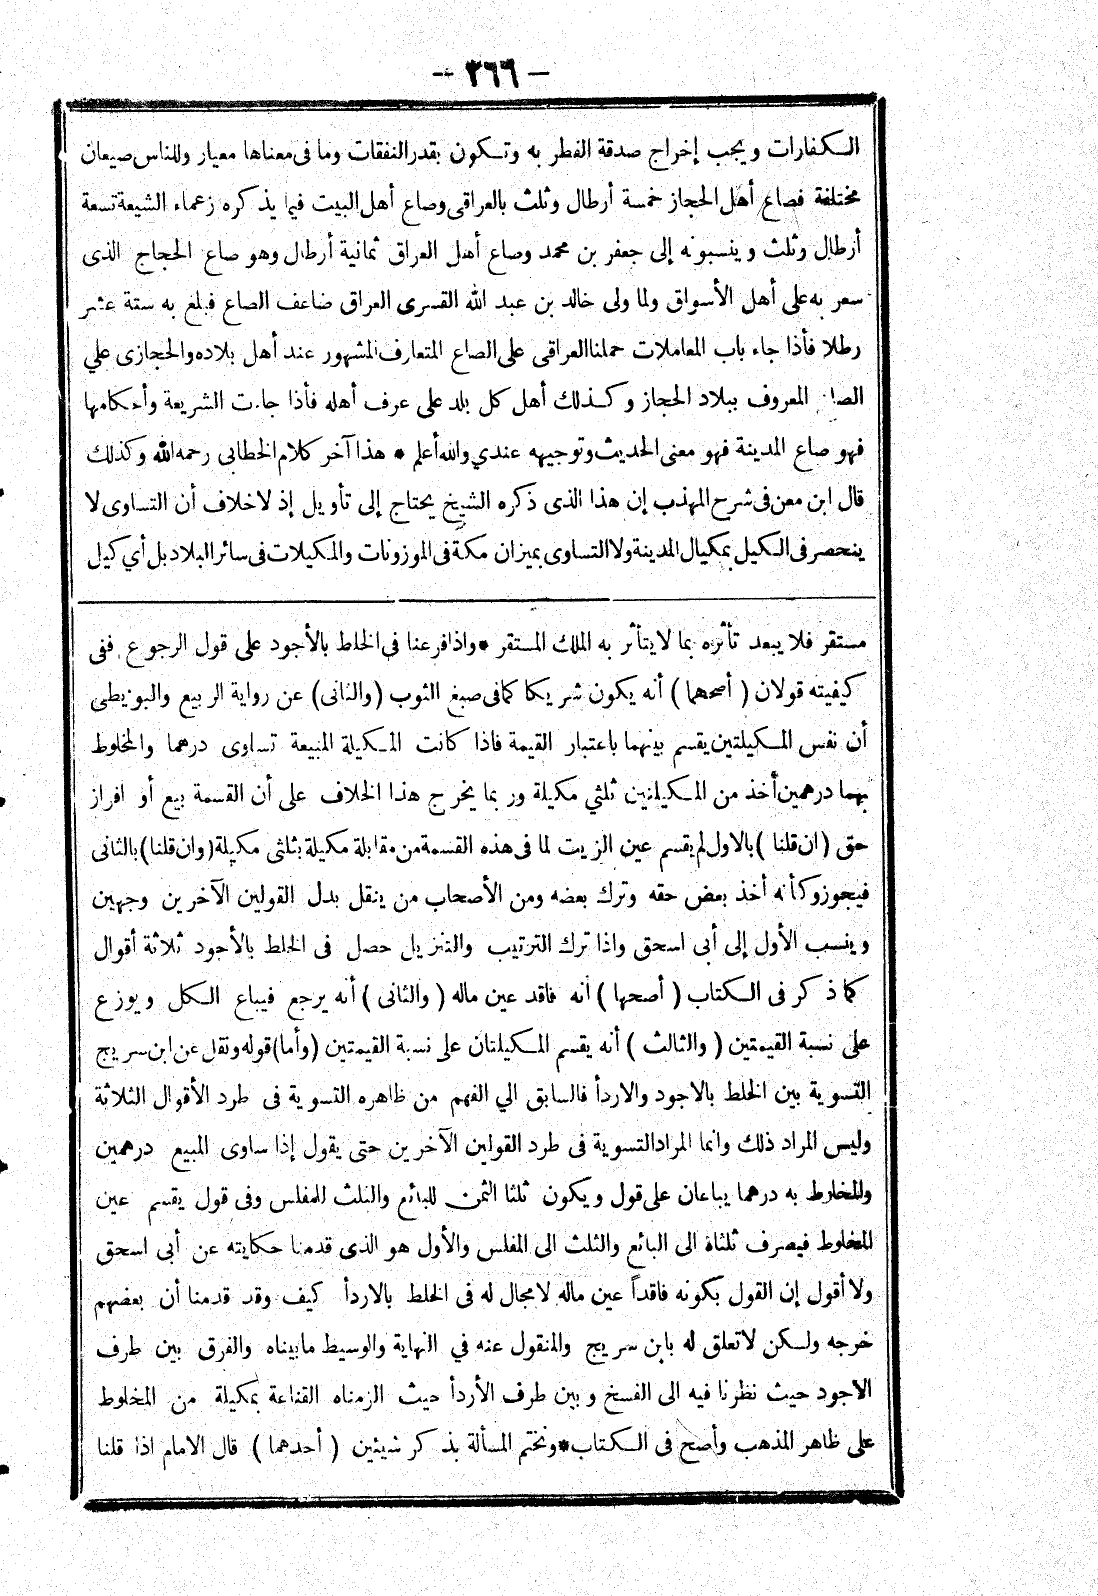 - ٢٦٦ -
الكفارات ويجب إخراج صدقة الفطر به وتكون بقدر النفقات وما فى معناها معيار وللناس صيعان
مختلفة فصاع أهل الحجاز خمسة أرطال وثلث بالعراقى وصاع أهل البيت فيما يذكره زعماء الشيعة تسعة
أرطال وثلث وينسبونه إلى جعفر بن محمد وصاع أهل العراق ثمانية أرطال وهو صاع الحجاج الذى
سعر به على أهل الأسواق ولما ولى خالد بن عبد الله القسرى العراق ضاعف الصاع فبلغ به ستة عشر
رطلا فأذا جاء باب المعاملات حملنا العراقى على الصاع المتعارف المشهور عند أهل بلاده والحجازى علي
الصاع المعروف ببلاد الحجاز وكذلك أهل كل بلد على عرف أهله فأذا جاءت الشريعة وأحكامها
فهو صاع المدينة فهو معنى الحديث وتوجيهه عندي والله أعلم * هذا آخر كلام الخطابى رحمه الله وكذلك
قال ابن معن فى شرح المهذب إن هذا الذى ذكره الشيخ يحتاج إلى تأويل إذ لا خلاف أن التساوى لا
ينحصر فى الكيل بمكيال المدينة ولا التساوى بميزان مكة فى الموزونات والمكيلات فى سائر البلاد بل أي كيل
مستقر فلا يبعد تأثره بما لا يتأثر به الملك المستقر * واذا فرعنا في الخلط بالأجود على قول الرجوع ففى
كيفيته قولان ( أصحهما ) أنه يكون شريكا كما فى صبغ الثوب ( والثانى ) عن رواية الربيع والبويطى
أن نفس المكيلتين يقسم بينهما باعتبار القيمة فاذا كانت المكيلة المبيعة تساوى درهما والمخلوط
بهما درهمين أخذ من المكيلتين ثلثي مكيلة وربما يخرج هذا الخلاف على أن القسمة بيع أو افراز
حق ( ان قلنا ) بالاول لم يقسم عين الزيت لما فى هذه القسمة من مقابلة مكيلة بثلثى مكيلة ( وان قلنا ) بالثانى
فيجوز وكأنه أخذ بعض حقه وترك بعضه ومن الأصحاب من ينقل بدل القولين الآخرين وجهين
وينسب الأول إلى أبى اسحق واذا ترك الترتيب والتنزيل حصل فى الخلط بالأجود ثلاثة أقوال
كما ذكر فى الكتاب ( أصحها ) أنه فاقد عين ماله ( والثانى ) أنه يرجع فيباع الكل ويوزع
على نسبة القيمتين ( والثالث ) أنه يقسم المكيلتان على نسبة القيمتين ( وأما ) قوله ونقل عن ابن سريج
التسوية بين الخلط بالاجود والاردأ فالسابق الي الفهم من ظاهره التسوية فى طرد الأقوال الثلاثة
وليس المراد ذلك وانما المراد التسوية فى طرد القولين الآخرين حتى يقول إذا ساوى المبيع درهمين
والمخلوط به درهما يباعان على قول ويكون ثلثا الثمن للبائع والثلث للمفلس وفى قول يقسم عين
المخلوط فيصرف ثلثاه الى البائع والثلث الى المفلس والأول هو الذى قدمنا حكايته عن أبى اسحق
ولا أقول إن القول بكونه فاقداً عين ماله لا مجال له فى الخلط بالاردأ كيف وقد قدمنا أن بعضهم
خرجه ولكن لا تعلق له بابن سريج والمنقول عنه في النهاية والوسيط ما بيناه والفرق بين طرف
الاجود حيث نظرنا فيه الى الفسخ وبين طرف الأردأ حيث الزمناه القناعة بمكيلة من المخلوط
على ظاهر المذهب وأصح فى الكتاب * ونختم المسألة بذكر شيئين ( أحدهما ) قال الامام اذا قلنا